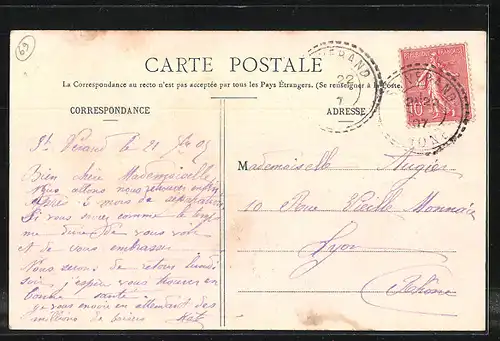 69
CARTE POSTALE
La Correspondance au recto n'est pas acceptée par tous les Pays Étrangers. (Se renseigner à la Poste.)
CORRESPONDANCE
ADRESSE
St Vérand le 21
Bien chère Mademoiselle
Nous allons nous retrouver enfin
après 6 mois de séparation
Si vous saviez comme le temps
me dure de vous voir
et de vous embrasser
Nous serons de retour lundi
soir j'espère vous trouver en
bonne santé.
je vous envoie en attendant des
millions de baisers
Mademoiselle Augier
10 Rue Vieille Monnaie
Lyon
Rhône
VERAND
22
RHONE
10